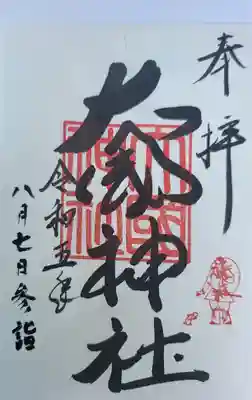 奉拝
大國神社
令和五年
八月七日参詣